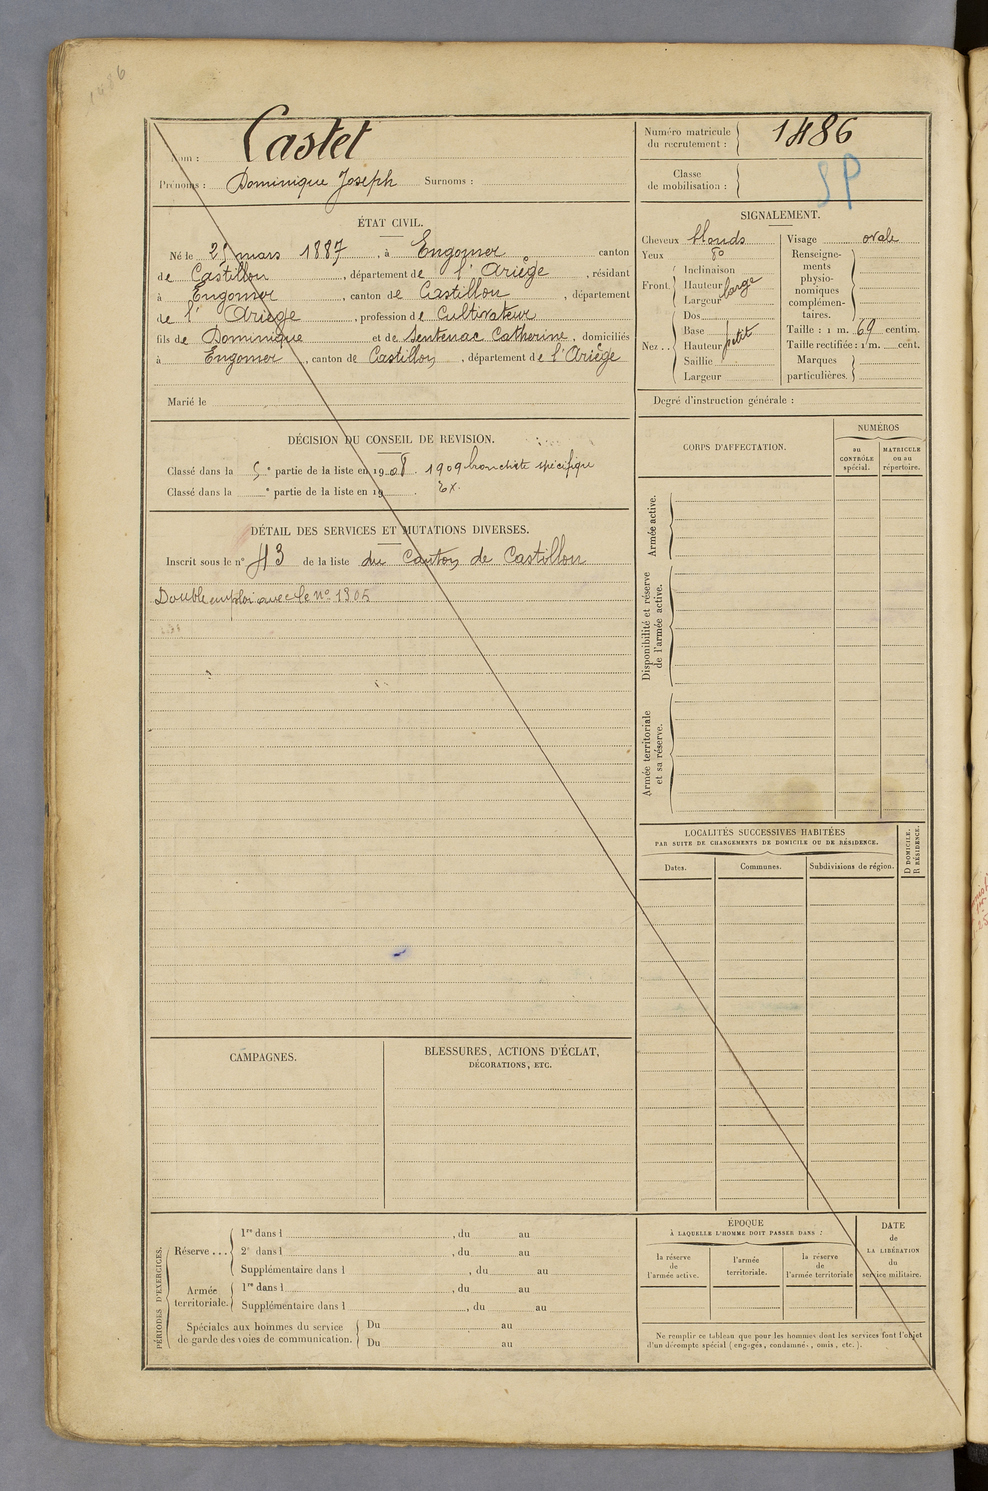 1486
Nom : Castet
Prénoms : Dominique Joseph Surnoms :
Numéro matricule du recrutement : 1486
Classe de mobilisation :
SP
ÉTAT CIVIL.
Né le 25 mars 1887, à Engomer canton
de Castillon, département de l'Ariège, résidant
à Engomer, canton de Castillon, département
de l'Ariège, profession de Cultivateur
fils de Dominique et de Sentenac Catherine, domiciliés
à Engomer, canton de Castillon, département de l'Ariège
Marié le
SIGNALEMENT.
Cheveux blonds
Yeux do
Front. Inclinaison
Hauteur
Largeur large
Nez .. Dos
Base
Hauteur petit
Saillie
Largeur
Visage ovale
Renseigne-
ments
physio-
nomiques
complémen-
taires.
Taille : 1 m. 69 centim.
Taille rectifiée : 1 m. cent.
Marques
particulières.
Degré d'instruction générale :
DÉCISION DU CONSEIL DE REVISION.
Classé dans la 5e partie de la liste en 1908. 1909 bronchite spécifique
Classé dans la e partie de la liste en 19 . Ex.
DÉTAIL DES SERVICES ET MUTATIONS DIVERSES.
Inscrit sous le n° 43 de la liste du Canton de Castillon
Double emploi avec le no 1305
CORPS D'AFFECTATION.
NUMÉROS
au CONTRÔLE spécial.
MATRICULE ou au répertoire.
Armée active.
Disponibilité et réserve
de l'armée active.
Armée territoriale
et sa réserve.
LOCALITÉS SUCCESSIVES HABITÉES
PAR SUITE DE CHANGEMENTS DE DOMICILE OU DE RÉSIDENCE.
Dates.
Communes.
Subdivisions de région.
D DOMICILE.
R RÉSIDENCE.
CAMPAGNES.
BLESSURES, ACTIONS D'ÉCLAT,
DÉCORATIONS, ETC.
PÉRIODES D'EXERCICES.
Réserve ... 1re dans l , du au
2e dans l , du au
Supplémentaire dans l , du au
Armée territoriale. 1re dans l , du au
Supplémentaire dans l , du au
Spéciales aux hommes du service
de garde des voies de communication.
Du au
Du au
ÉPOQUE
À LAQUELLE L'HOMME DOIT PASSER DANS :
la réserve
de
l'armée active.
l'armée
territoriale.
la réserve
de
l'armée territoriale
DATE
de
LA LIBÉRATION
du
service militaire.
Ne remplir ce tableau que pour les hommes dont les services font l'objet
d'un décompte spécial (engagés, condamnés, omis, etc.).